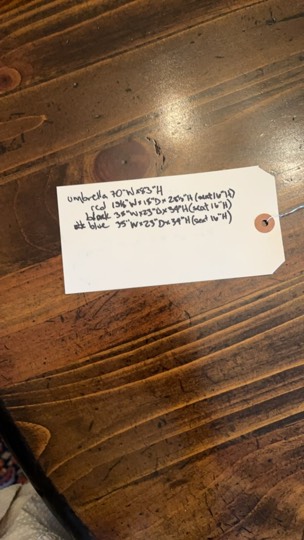 umbrella 70"W x 83"H
red 15½"W x 15"D x 28½"H (seat 16"H)
black 35"W x 23"D x 39"H (seat 16"H)
blue 35"W x 23"D x 39"H (seat 16"H)